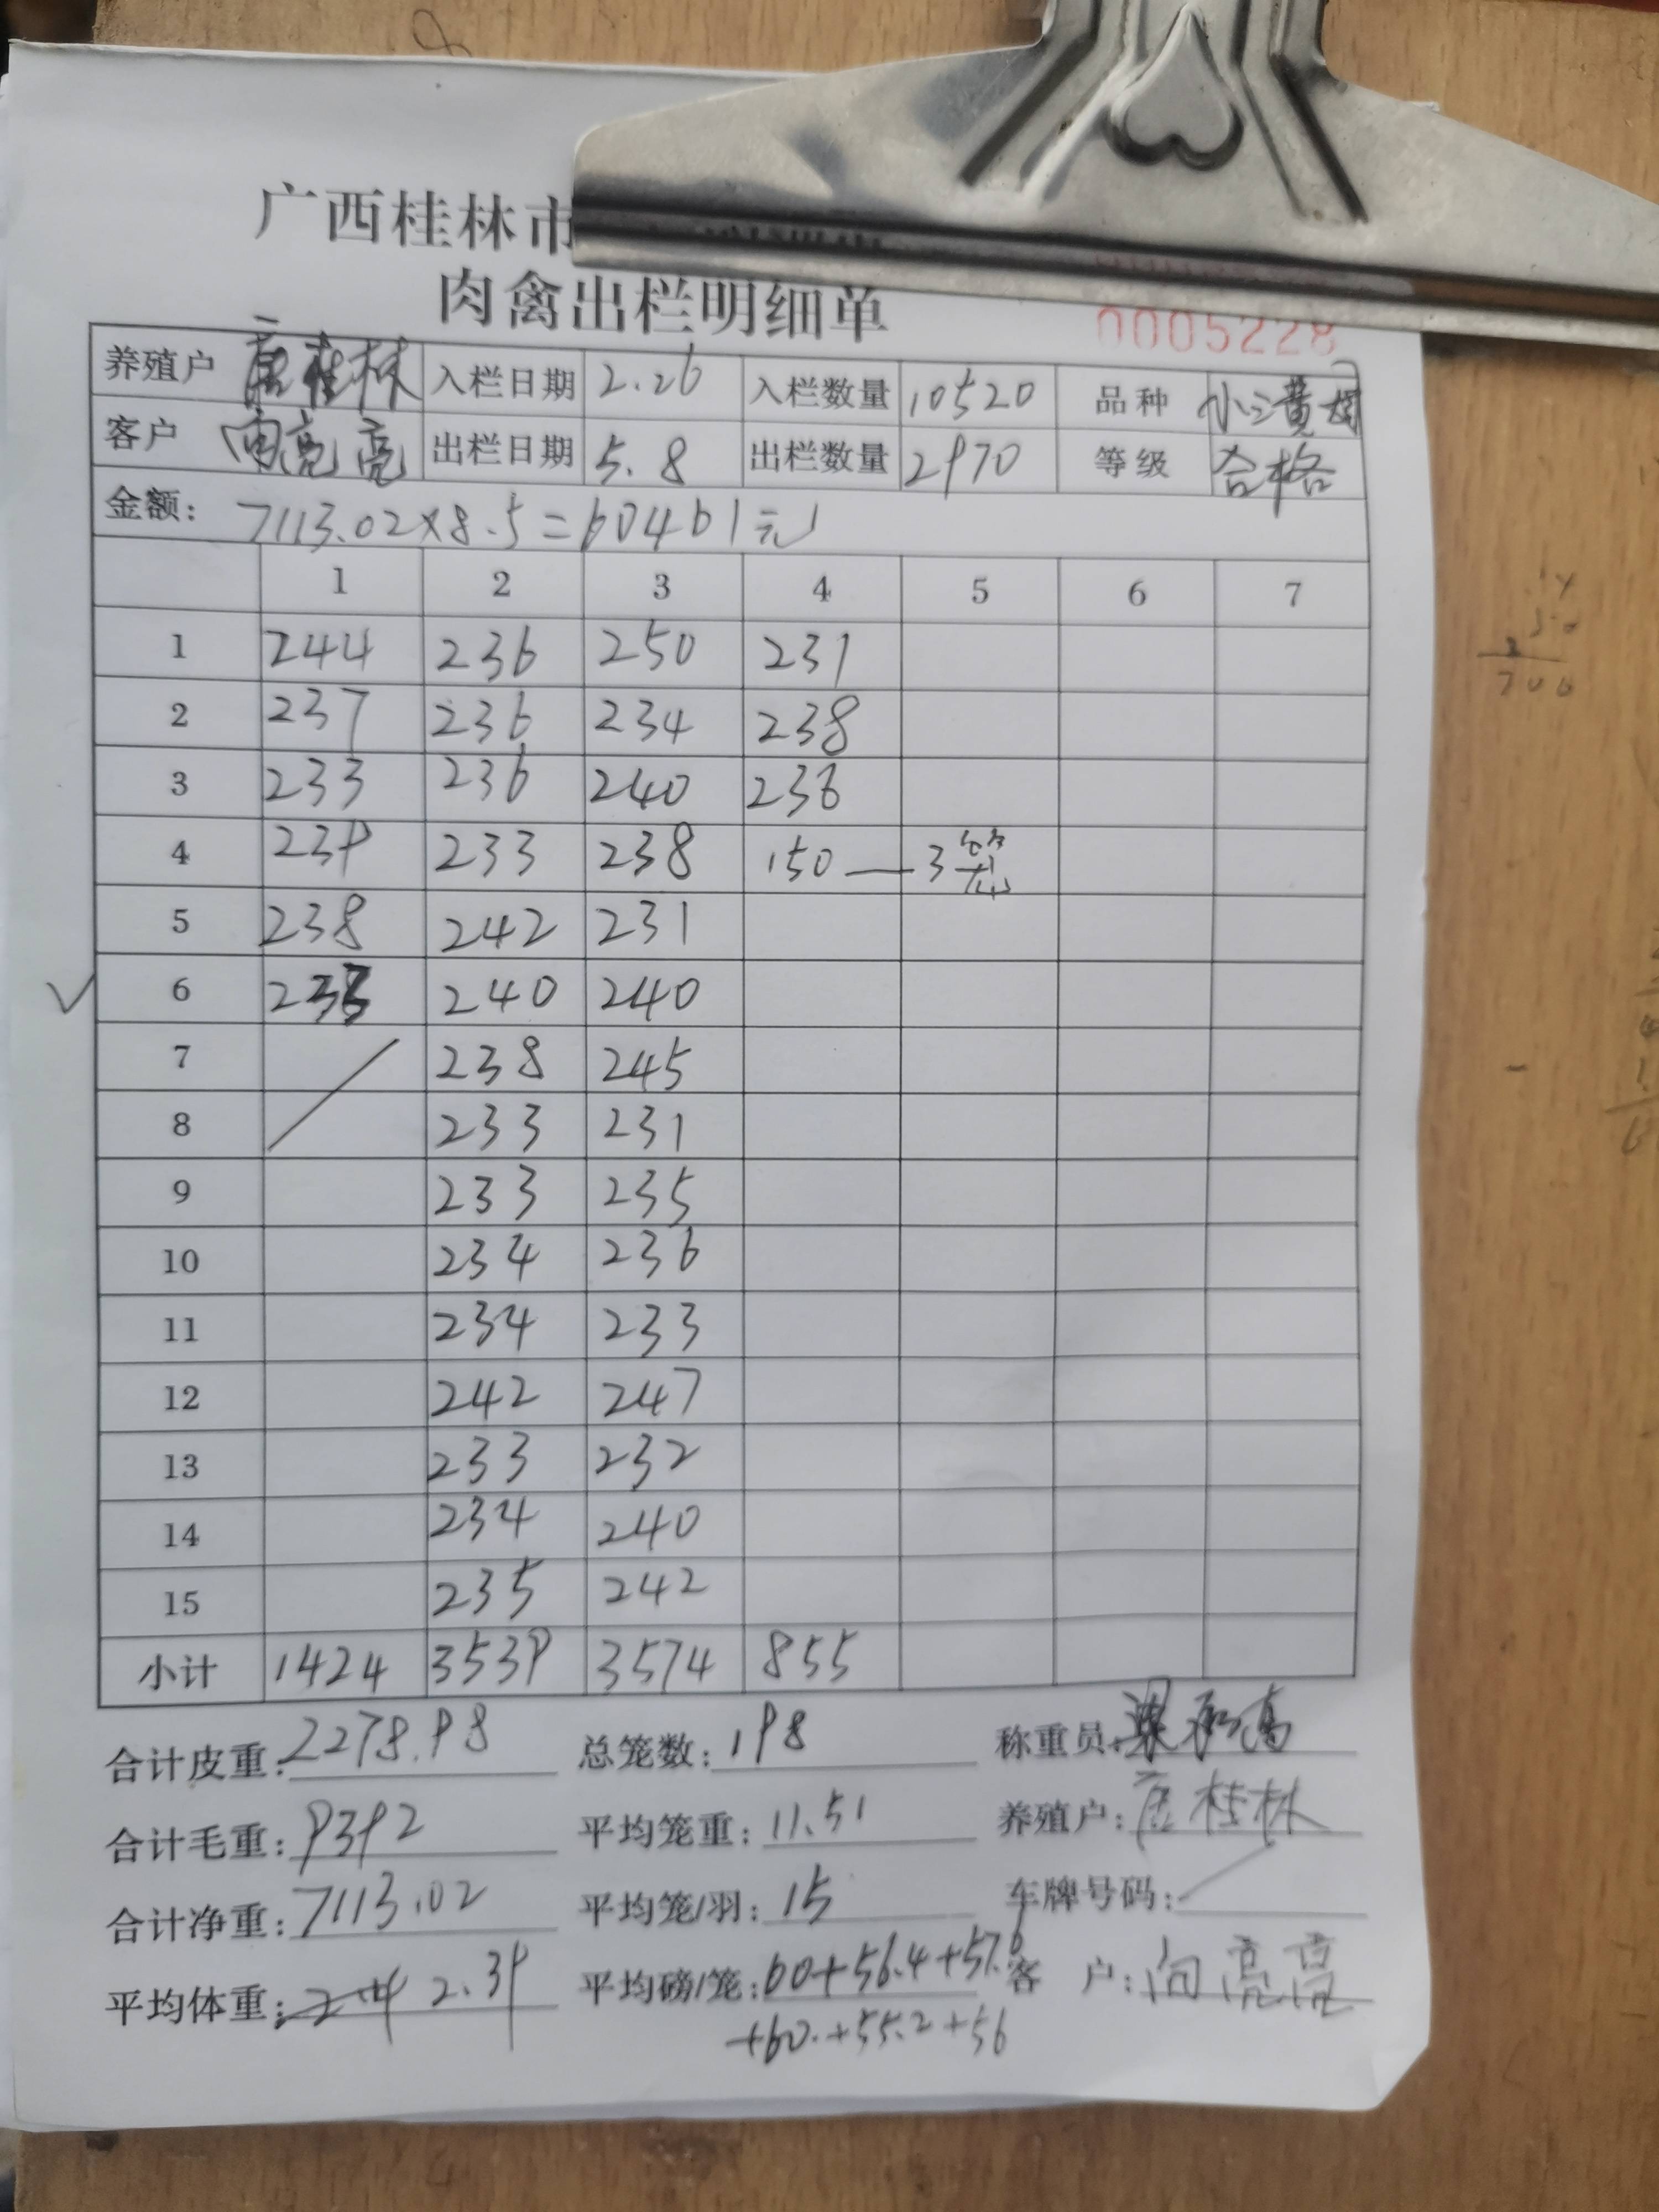 广西桂林市
肉禽出栏明细单
0005228
养殖户 唐桂林 入栏日期 2.26 入栏数量 10520 品种
客户 向亮亮 出栏日期 5.8 出栏数量 2970 等级 合格
金额: 7113.02×8.5=60461元
1 2 3 4 5 6 7
1 244 236 250 231
2 237 236 234 238
3 233 236 240 236
4 239 233 238 150—3笼
5 238 242 231
6 233 240 240
7 238 245
8 233 231
9 233 235
10 234 236
11 234 233
12 242 247
13 233 232
14 234 240
15 235 242
小计 1424 3539 3574 855
合计皮重: 2278.98 总笼数: 198 称重员:
合计毛重: 9392 平均笼重: 11.51 养殖户: 唐桂林
合计净重: 7113.02 平均笼/羽: 15 车牌号码:
平均体重: 2.39 平均磅/笼: 60+56.4+57.6 客户: 向亮亮
+60.+55.2+56